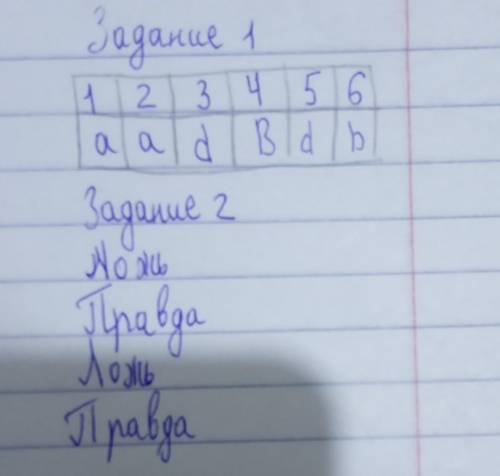 Задание 1
1 2 3 4 5 6
a a d B d b
Задание 2
Ложь
Правда
Ложь
Правда